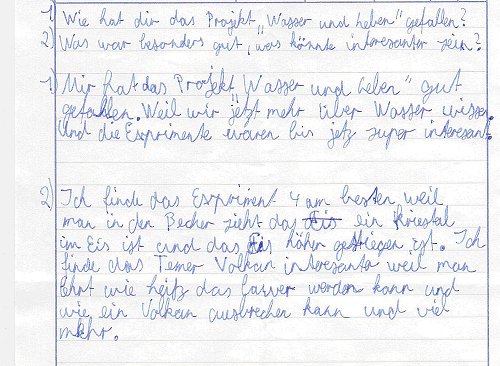 1) Wie hat dir das Projekt „Wasser und Leben" gefallen?
2) Was war besonders gut, was könnte interesanter sein?
1) Mir hat das Projekt Wasser und Leben" gut
gefahlen. Weil wir jetzt mehr über Wasser wissen.
Und die Exsprimente waren bis jetz super interesant.
2) Ich finde das Exspriment 4 am besten weil
man in den Becher zieht das ein Kriestal
im Eis ist und das Eis höher gestiegen ist. Ich
finde das Temer Volkan interesanta weil man
lehnt wie heiß das werden kann und
wie ein Volkan ausbrechen kann und viel
mehr.